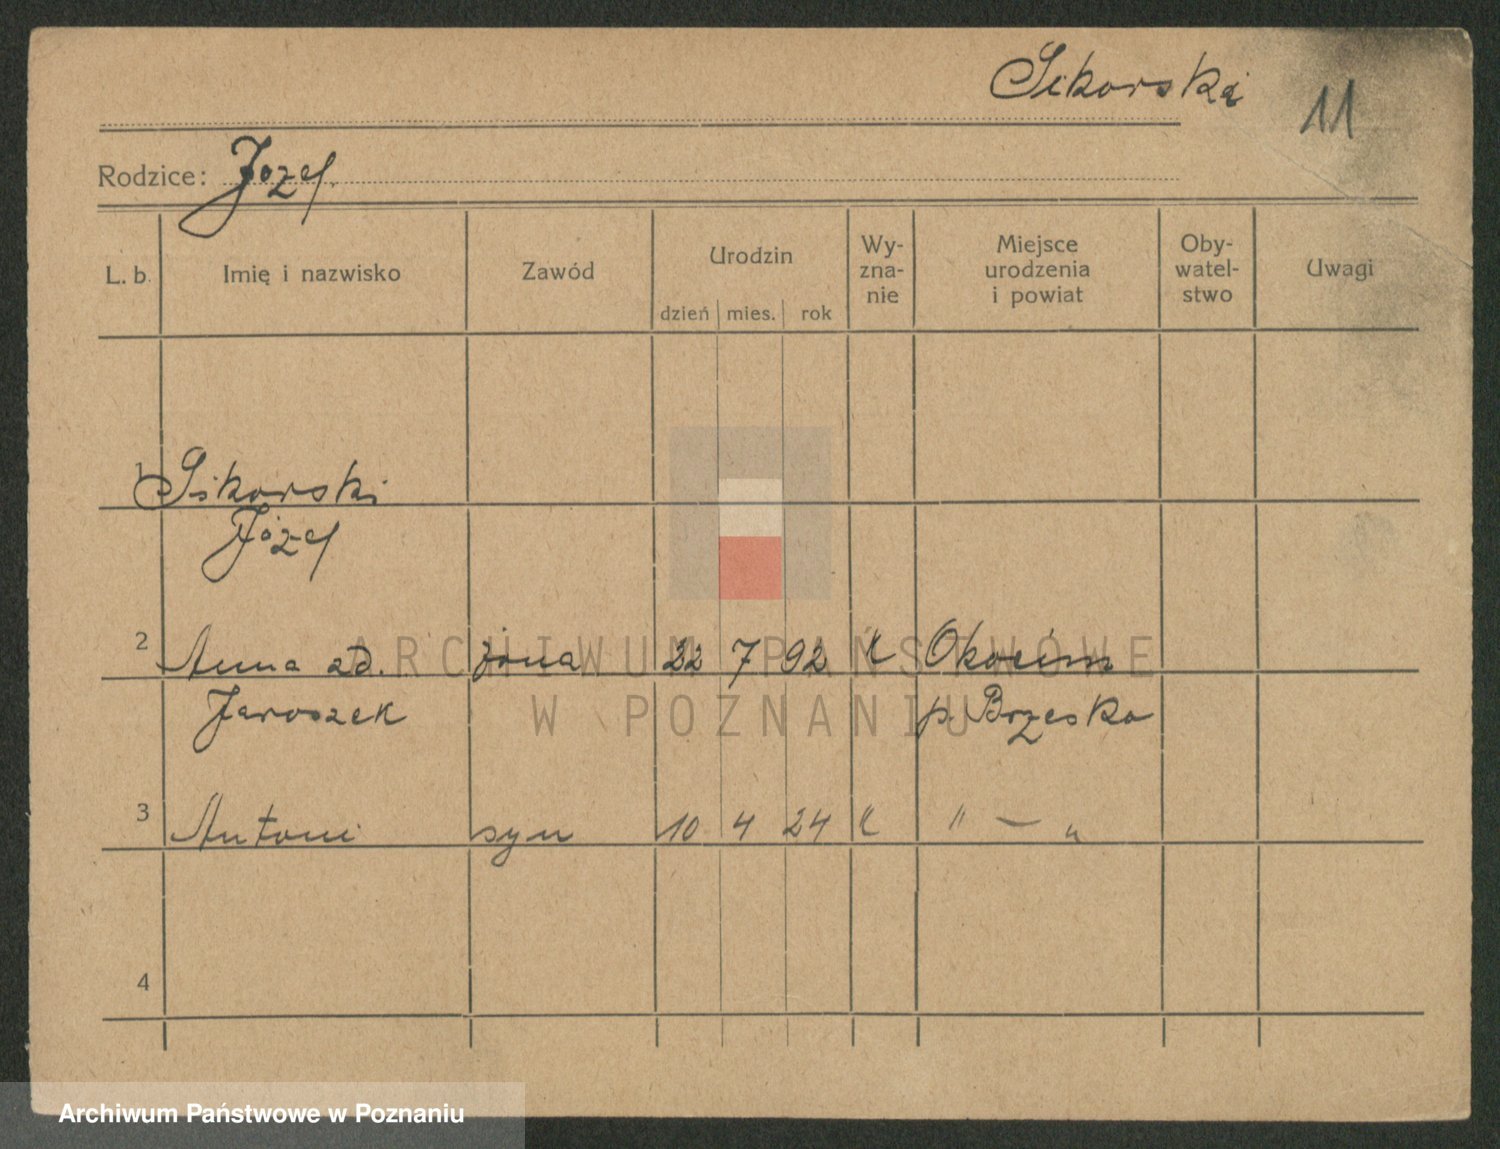 Sikorski
11
Rodzice: Józef
L. b. Imię i nazwisko Zawód Urodzin dzień mies. rok Wy-zna-nie Miejsce urodzenia i powiat Oby-watel-stwo Uwagi
1 Sikorski
Józef
2 Anna zd. żona 22 7 92 k Okocim
Jaroszek p. Brzesko
3 Antoni syn 10 4 24 k " — "
4
ARCHIWUM PAŃSTWOWE
W POZNANIU
Archiwum Państwowe w Poznaniu